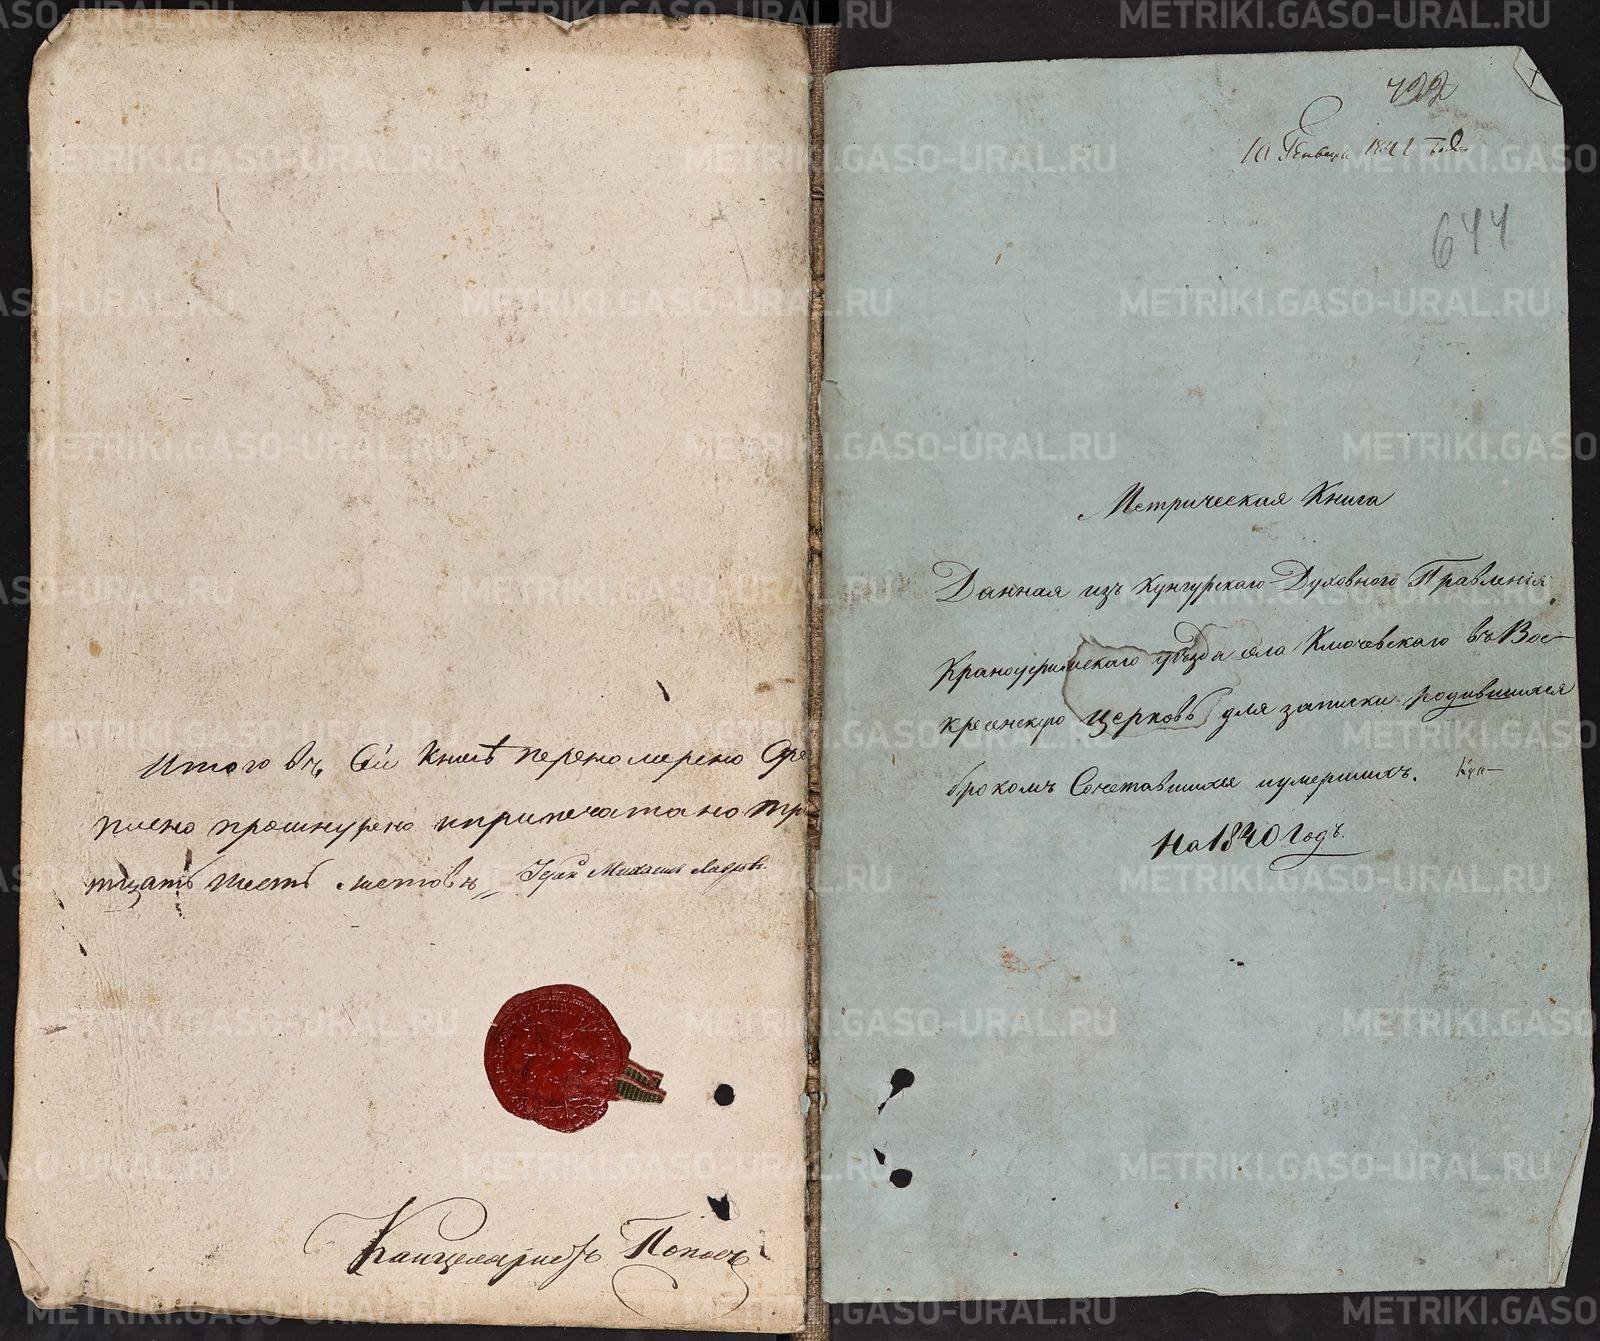 Итого въ сей книгѣ перенумерено скре
плено прошнурено и припечатано тр
тцать шесть листовъ
Канцеляристъ Поповъ
10 Генваря 1841 года
644
Метрическая Книга
Данная изъ Кунгурскаго Духовного Правленія
Красноуфимскаго уѣзда села Ключевскаго въ Вос-
кресенскую церковь для записки родившихся
бракомъ Сочетавшихся и умершихъ.
На 1840 Годъ.
METRIKI.GASO-URAL.RU